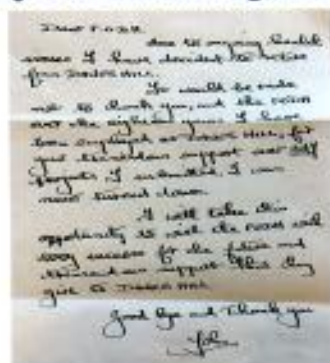 Dear
due to ongoing health
issues I have decided to retire
from
It would be rude
not to thank you, and the room
over the eighteen years I have
been employed at HILL, for
your tremendous support over
projects I submitted. I was
never turned down.
I will take this
opportunity to wish the room
every success for the future and
tremendous support they
give to HILL
Good bye and Thank you
John